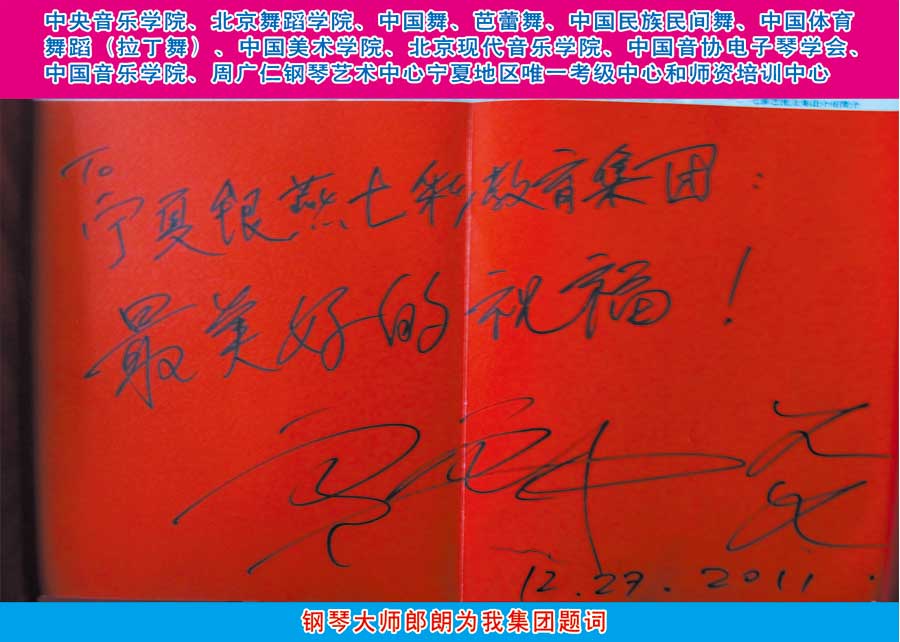 中央音乐学院、北京舞蹈学院、中国舞、芭蕾舞、中国民族民间舞、中国体育
舞蹈（拉丁舞）、中国美术学院、北京现代音乐学院、中国音协电子琴学会、
中国音乐学院、周广仁钢琴艺术中心宁夏地区唯一考级中心和师资培训中心
To
宁夏银燕七彩教育集团：
最美好的祝福！
12.27.2011.
钢琴大师郎朗为我集团题词